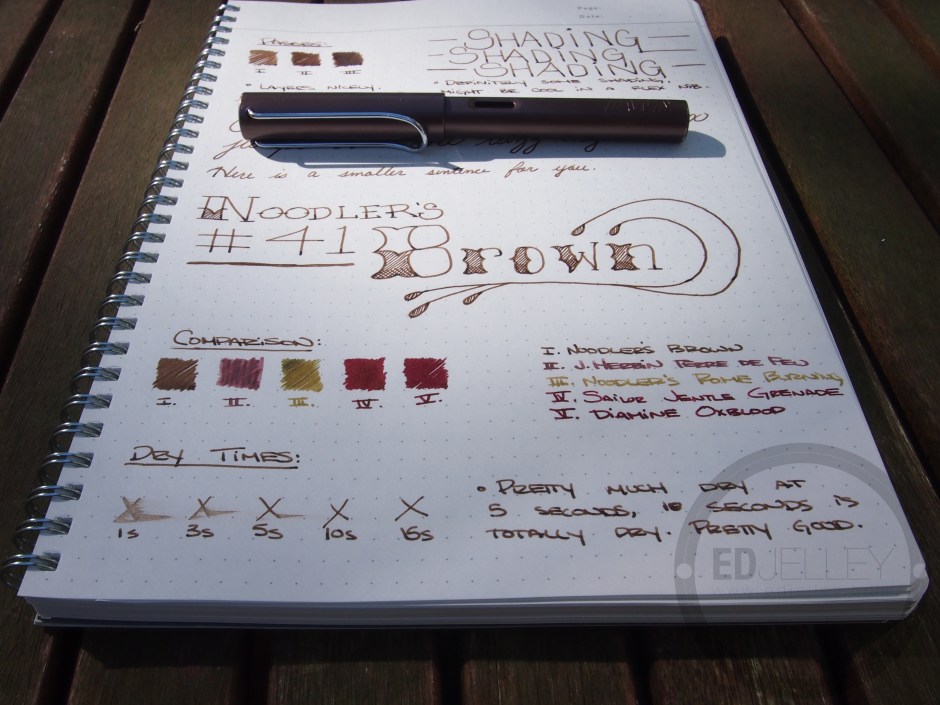 Page:
Date:
Passes:
I II III
SHADING
SHADING
SHADING
• Layers nicely.
• Definitely some shading.
Might be cool in a flex nib.
Here is a smaller sentence for you.
Noodler's
#41 Brown
Comparison:
I. II. III. IV. V.
I. Noodler's Brown
II. J. Herbin Terre de Feu
III. Noodler's Rome Burning
IV. Sailor Jentle Grenade
V. Diamine Oxblood
Dry Times:
1s 3s 5s 10s 15s
• Pretty much dry at
5 seconds, 10 seconds is
totally dry. Pretty good.
ED JELLEY